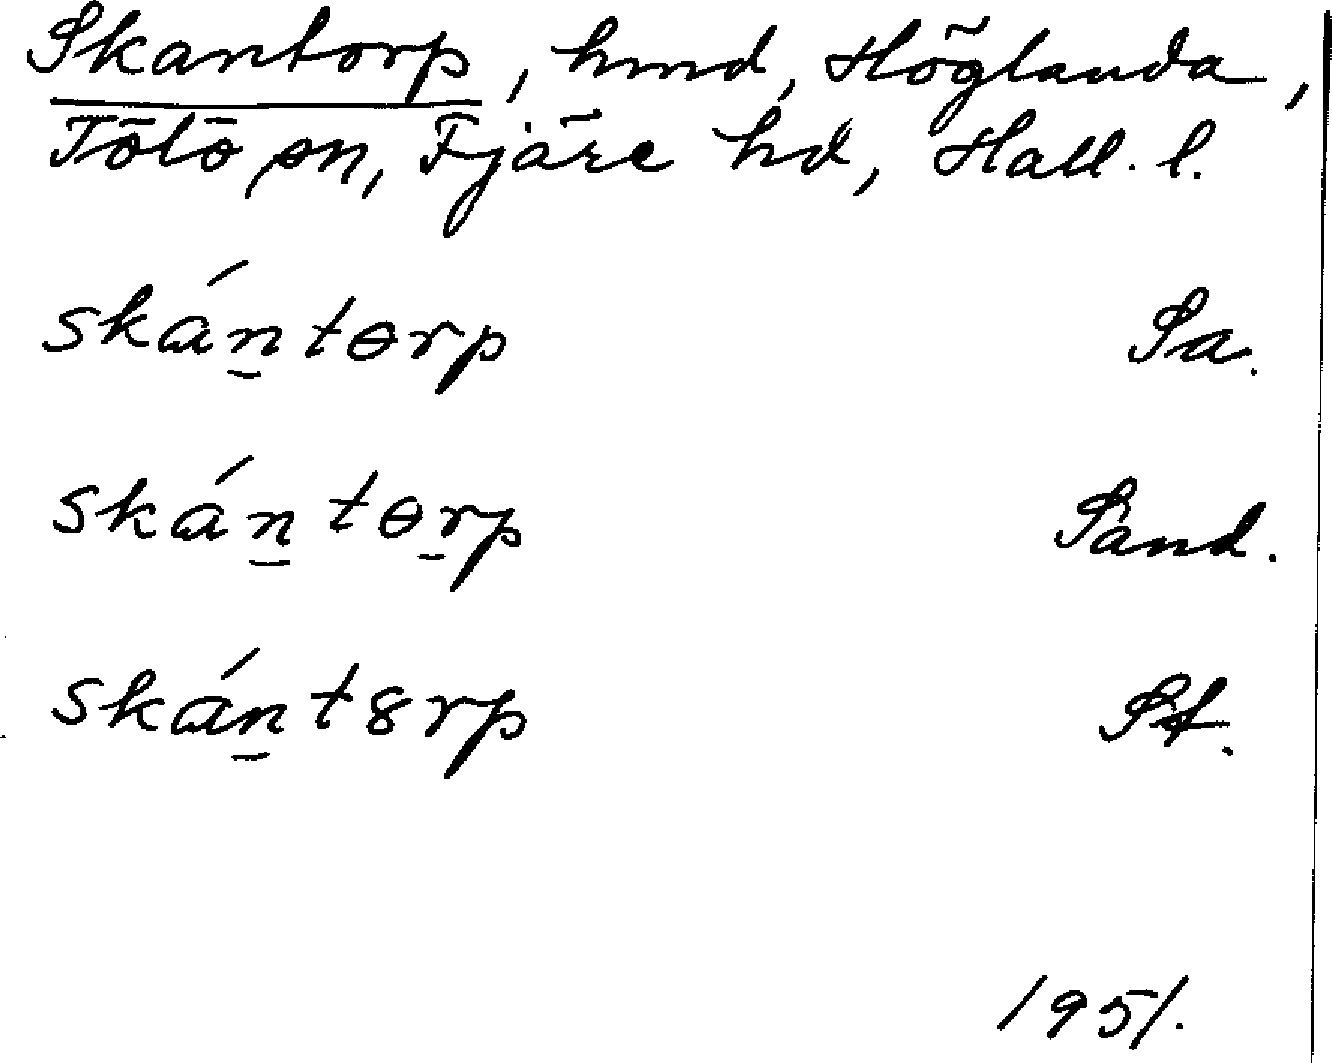 Skantorp, hmd, Höglanda,
Tölö sn, Fjäre hd, Hall. l.
skán̲tɵrp Sa.
skán̲tɵr̲p Sand.
skán̲t8rp St.
1951.